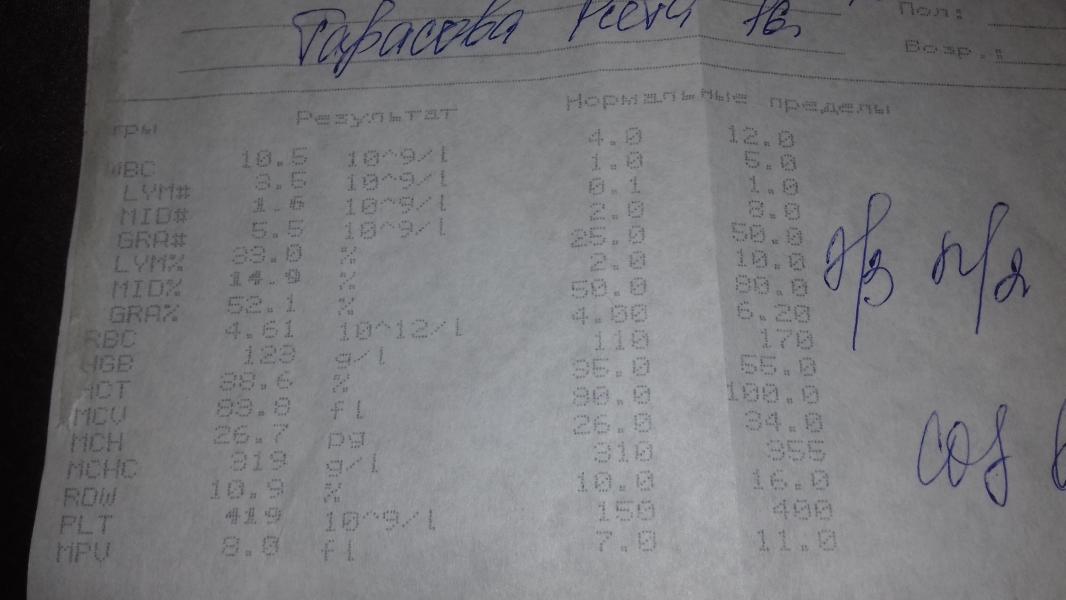 Тарасова
Пол:
Возр.:
тры Результат Нормальные пределы
WBC 10.5 10^9/l 4.0 12.0
LYM# 3.5 10^9/l 1.0 5.0
MID# 1.6 10^9/l 0.1 1.0
GRA# 5.5 10^9/l 2.0 8.0
LYM% 33.0 % 25.0 50.0
MID% 14.9 % 2.0 10.0
GRA% 52.1 % 50.0 80.0
RBC 4.61 10^12/l 4.00 6.20
HGB 123 g/l 110 170
HCT 38.6 % 35.0 55.0
MCV 83.8 fl 80.0 100.0
MCH 26.7 pg 26.0 34.0
MCHC 319 g/l 310 355
RDW 10.9 % 10.0 16.0
PLT 419 10^9/l 150 400
MPV 8.0 fl 7.0 11.0
э/3 п/2
соэ